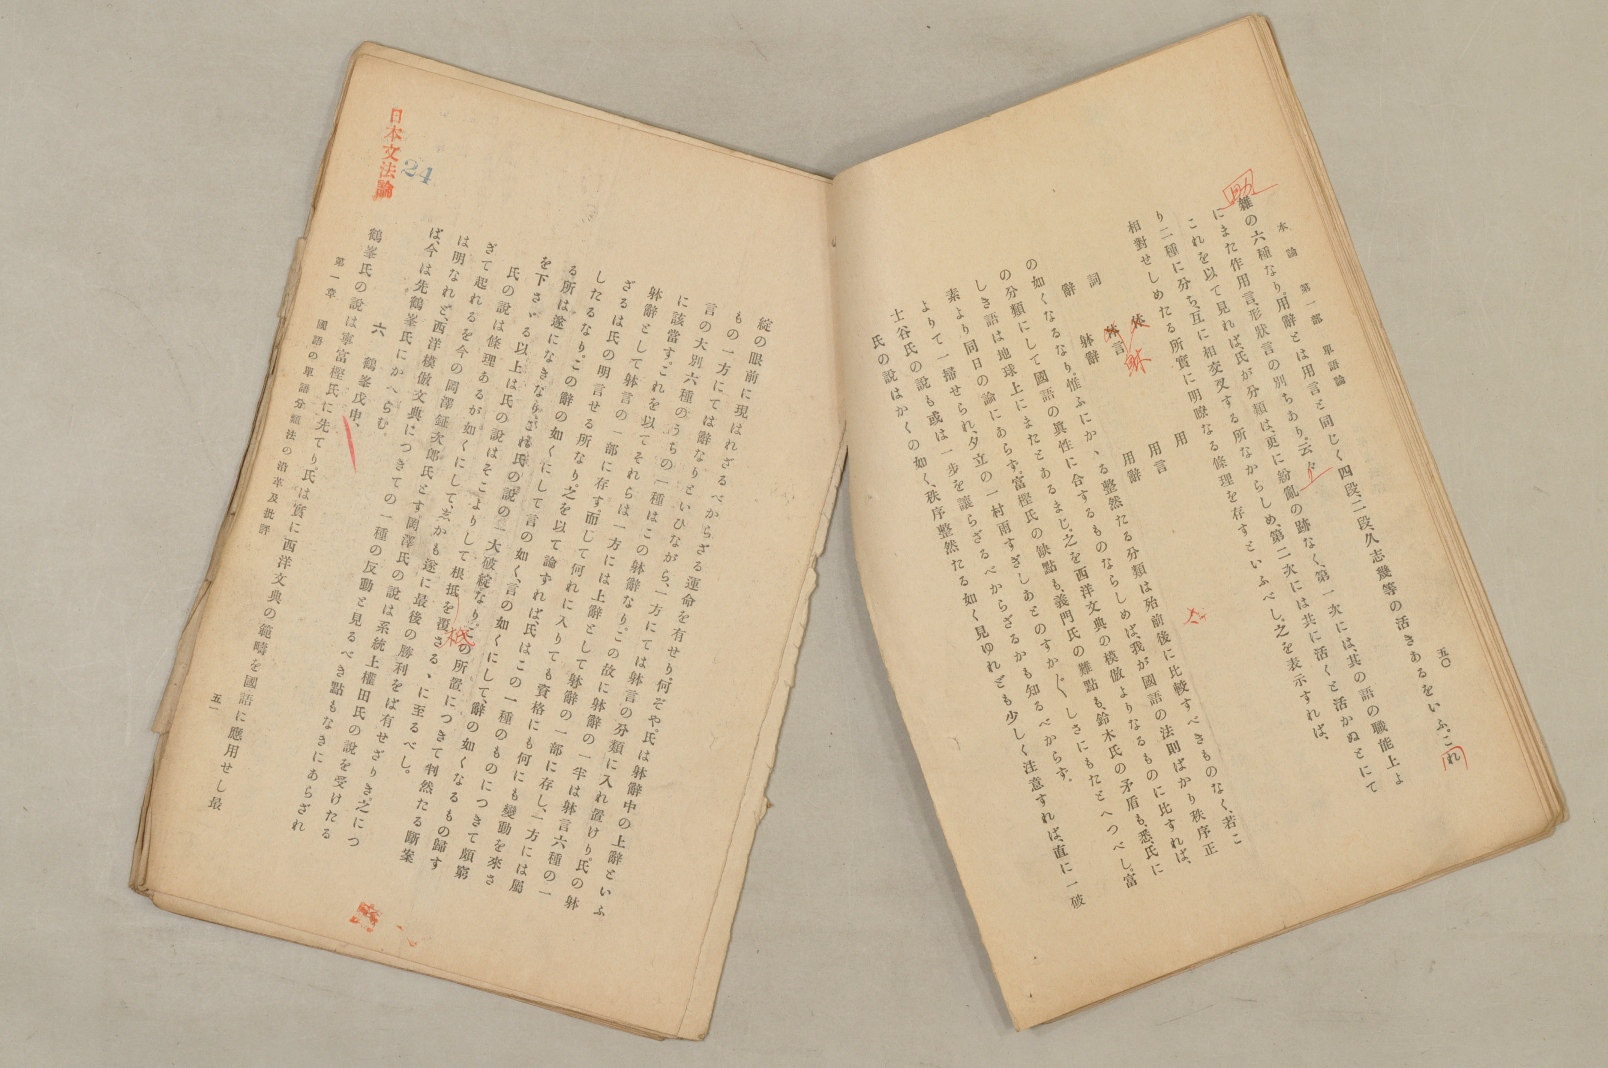 本論　第一部　單語論
五〇
雜の六種なり、用辭とは用言と同じく四段、二段、久志幾等の活きあるをいふ。これ
にまた作用言、形狀言の別ちあり、云々
これを以て見れば、氏が分類は更に紛亂の跡なく、第一次には、其の語の職能上よ
り二種に分ち、互に相交叉する所なからしめ、第二次には共に活くと活かぬとにて
相對せしめたる所、實に明瞭なる條理を存すといふべし。之を表示すれば、
助
詞　用
言　用言
辭　躰辭　用辭
躰
の如くなるなり。惟ふにかゝる整然たる分類は殆前後に比較すべきものなく、若こ
の分類にして國語の眞性に合するものならしめば、我が國語の法則ばかり秩序正
しき語は地球上にまたとあるまじ。之を西洋文典の模倣よりなるものに比すれば、
素より同日の論にあらず。富樫氏の缺點も、義門氏の難點も、鈴木氏の矛盾も、悉、氏に
よりて一掃せられ、夕立の一村雨すぎしあとのすが〱しさにもたとへつべし。富
士谷氏の說も或は一步を讓らざるべからざるかも知るべからず。
氏の說はかくの如く、秩序整然たる如く見ゆれども少しく注意すれば、直に一破
綻の眼前に現はれざるべからざる運命を有せり。何ぞや、氏は躰辭中の上辭といふ
もの一方にては辭なりといひながら、一方にては躰言の分類に入れ置けり。氏の躰
言の大別六種のうちの一種はこの躰辭なり。この故に躰辭の一半は躰言六種の一
に該當す。これを以てそれらは一方には上辭として躰辭の一部に存し、一方には屬
躰辭として躰言の一部に存す。而して何れに入りても資格にも何にも變動を來さ
ざるは氏の明言せる所なり。之を以て論ずれば、氏はこの一種のものにつきて頗窮
したるなり。この辭の如くにして言の如く、言の如くにして、辭の如くなるもの歸す
る所は遂になきなり。これ氏の說の一大破綻なり。この所置につきて判然たる斷案
を下さゞる以上は氏の說はそこよりして根抵を覆さるゝに至るべし。
氏の說は條理あるが如くにして、しかも遂に最後の勝利をば有せざりき。之につ
ぎて起れるを今の岡澤鉦次郎氏とす。岡澤氏の說は系統上權田氏の說を受けたる
は明なれど、西洋模倣文典につきての一種の反動と見るべき點もなきにあらざれ
ば、今は先鶴峯氏にかへらむ。
六　鶴峯戊申、
鶴峯氏の說は寧富樫氏に先てり。氏は實に西洋文典の範疇を國語に應用せし最
第一章　國語の單語分類法の沿革及批評
五一
日本文法論
24